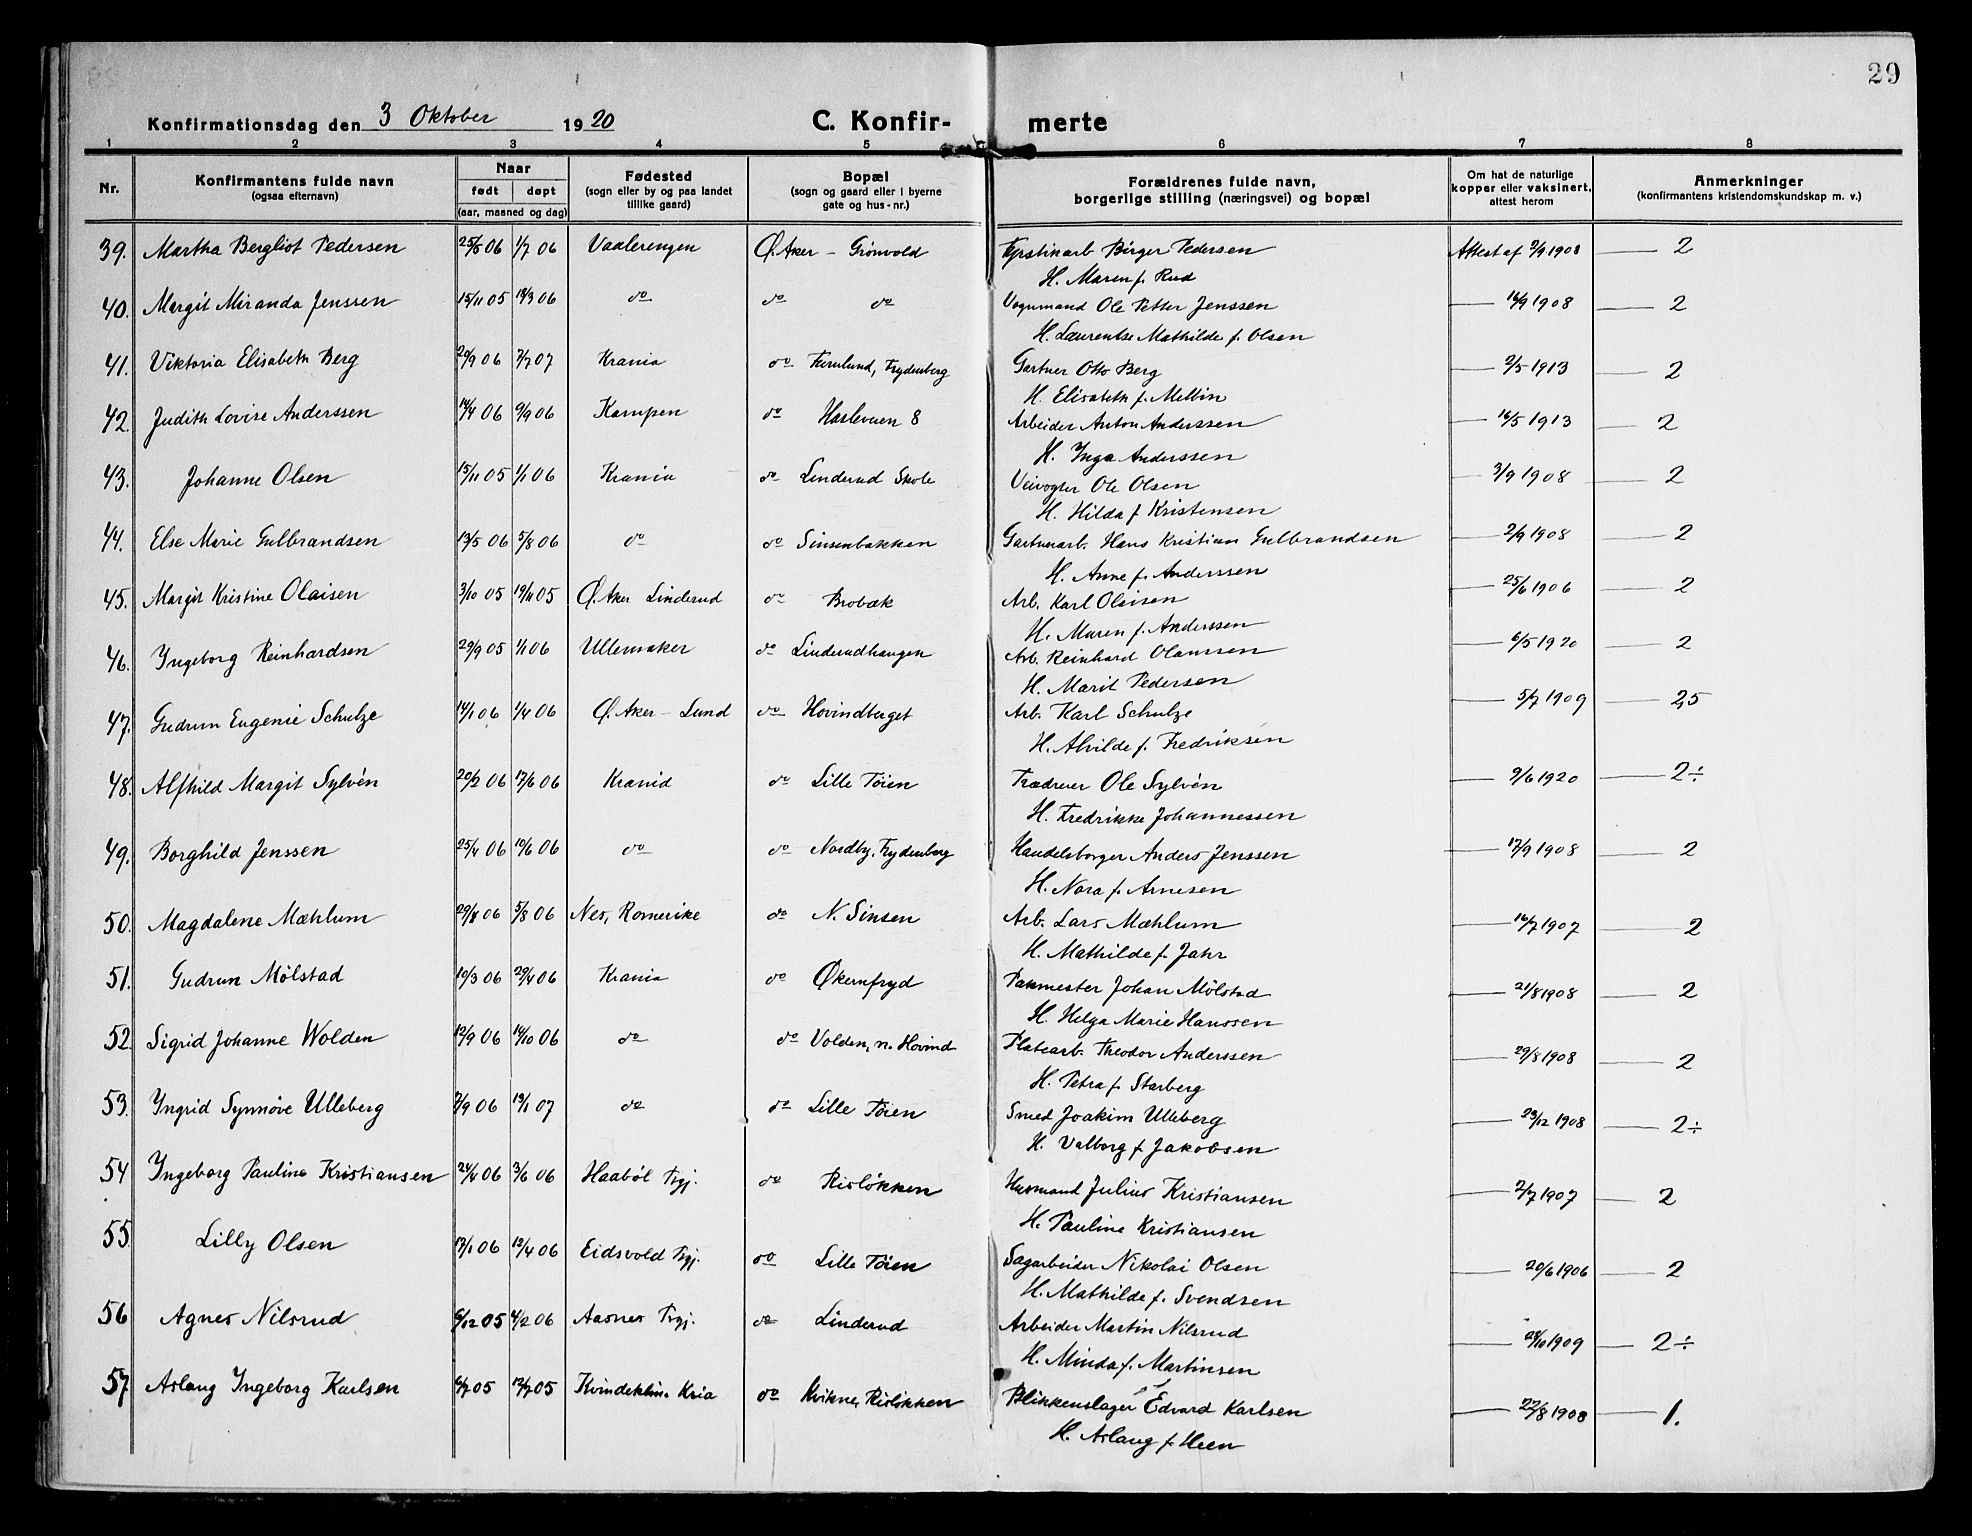 29
Konfirmationsdag den 3 Oktober 1920 C. Konfir- merte
1 2 3 4 5 6 7 8
Nr. Konfirmantens fulde navn (ogsaa efternavn) Naar født døpt (aar, maaned og dag) Fødested (sogn eller by og paa landet tillike gaard) Bopæl (sogn og gaard eller i byerne gate og hus-nr.) Forældrenes fulde navn, borgerlige stilling (næringsvei) og bopæl Om hat de naturlige kopper eller vaksinert, attest herom Anmerkninger (konfirmantens kristendomskundskap m. v.)
39. Martha Bergliot Pedersen 25/5 06 1/7 06 Vaalerengen Ø. Aker - Grönvold Fyrstikarb Birger Pedersen Attest af 2/9 1908 2
H. Maren f. Rud
40. Margit Miranda Jenssen 15/11 05 18/3 06 do do do Vognmand Ole Petter Jenssen 16/9 1908 2
H. Laurentse Mathilde f. Olsen
41. Viktoria Elisabeth Berg 29/9 06 7/7 07 Krania do Furulund, Frydenberg Gartner Otto Berg 2/5 1913 2
H. Elisabeth f. Mellin
42. Judith Lovise Anderssen 14/4 06 9/9 06 Kampen do Haslevaien 8 Arbeider Anton Anderssen 16/5 1913 2
H. Inga Anderssen
43. Johanne Olsen 15/11 05 1/1 06 Krania do Linderud Skole Veivogter Ole Olsen 3/9 1908 2
H. Hilda f. Kristensen
44. Else Marie Gulbrandsen 13/5 06 5/8 06 do do Sinsenbakken Gartnerarb. Hans Kristian Gulbrandsen 2/9 1908 2
H. Anne f. Anderssen
45. Margit Kristine Olaisen 3/10 05 19/11 05 Ø. Aker Linderud do Brobæk Arb. Karl Olaisen 25/6 1906 2
H. Maren f. Anderssen
46. Ingeborg Reinhardsen 29/9 05 1/1 06 Ullensaker do Linderudhaugen Arb. Reinhard Olaussen 6/5 1920 2
H. Marit Pedersen
47. Gudrun Eugenie Schulze 14/1 06 1/4 06 Ø. Aker - Lund do Hovindberget Arb. Karl Schulze 5/7 1909 2,5
H. Alvilde f. Fredriksen
48. Alfhild Margit Sylvén 20/2 06 17/6 06 Krania do Lille Töien Trædreier Ole Sylvén 9/6 1920 2÷
H. Fredrikke Johannessen
49. Borghild Jenssen 25/4 06 10/6 06 do do Nordby, Frydenberg Handelsborger Anders Jenssen 17/9 1908 2
H. Nora f. Arnesen
50. Magdalene Mæhlum 5/8 06 Nes, Romerike do N. Sinsen Arb. Lars Mæhlum 16/7 1907 2
H. Mathilde f. Jahr
51. Gudrun Mölstad 10/3 06 29/4 06 Krania do Økernfryd Pakmester Johan Mölstad 21/8 1908 2
H. Helga Marie Hanssen
52. Sigrid Johanne Wolden 12/9 06 14/10 06 do do Volden, n. Hovind Platearb. Theodor Anderssen 29/8 1908 2
H. Petra f. Starberg
53. Ingrid Synnöve Ulleberg 7/9 06 13/1 07 do do Lille Töien Smed Joakim Ulleberg 23/12 1908 2÷
H. Valborg f. Jakobsen
54 Ingeborg Pauline Kristiansen 24/4 06 3/6 06 Haaböl Trgj. do Rislökken Husmand Julius Kristiansen 2/7 1907 2
H. Pauline Kristiansen
55. Lilly Olsen 17/1 06 12/4 06 Eidsvold Trgj. do Lille Töien Sagarbeider Nikolai Olsen 20/6 1906 2
H. Mathilde f. Svendsen
56 Agnes Nilsrud 6/12 05 4/2 06 Aasnes Trgj. do Linderud Arbeider Martin Nilsrud 28/10 1909 2÷
H. Minda f. Martinsen
57 Aslaug Ingeborg Karlsen 6/7 05 12/7 05 Kvindeklin. Kria do Kvikne, Rislökken Blikkenslager Edvard Karlsen 27/8 1908 1.
H. Aslaug f. Heen